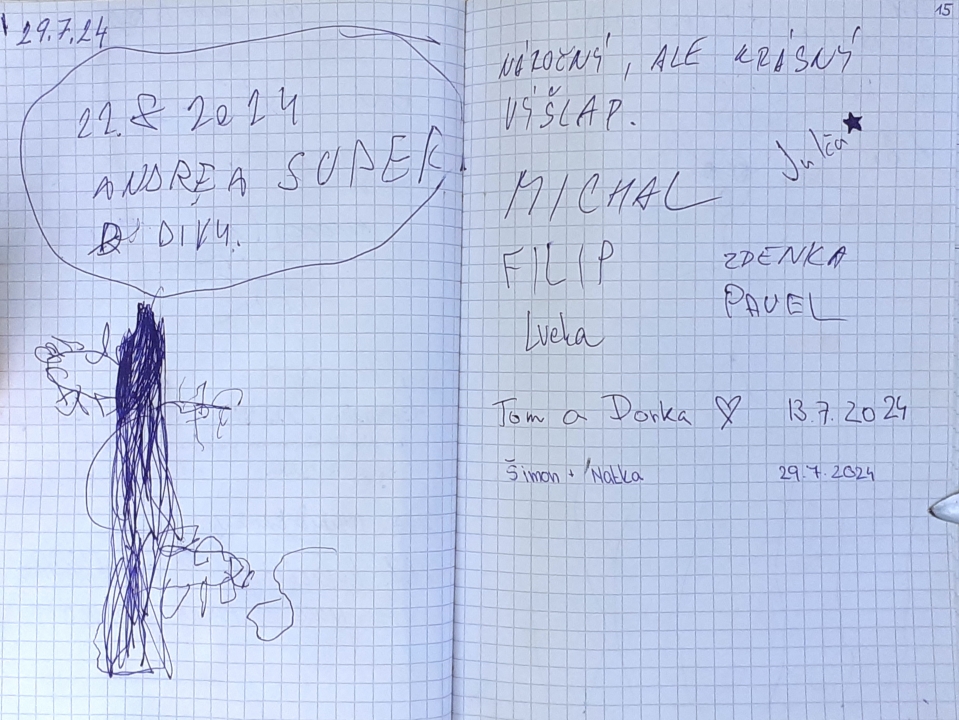 29.7.24
22.8 2024
ANDREA SUPEK
DIVY.
15
NÁROČNÝ, ALE KRÁSNÝ
VÝŠLAP.
Julča
MICHAL
FILIP
ZDENKA
PAVEL
Lucka
Tom a Dorka ♡ 13.7.2024
Šimon + Naťka 29.7.2024